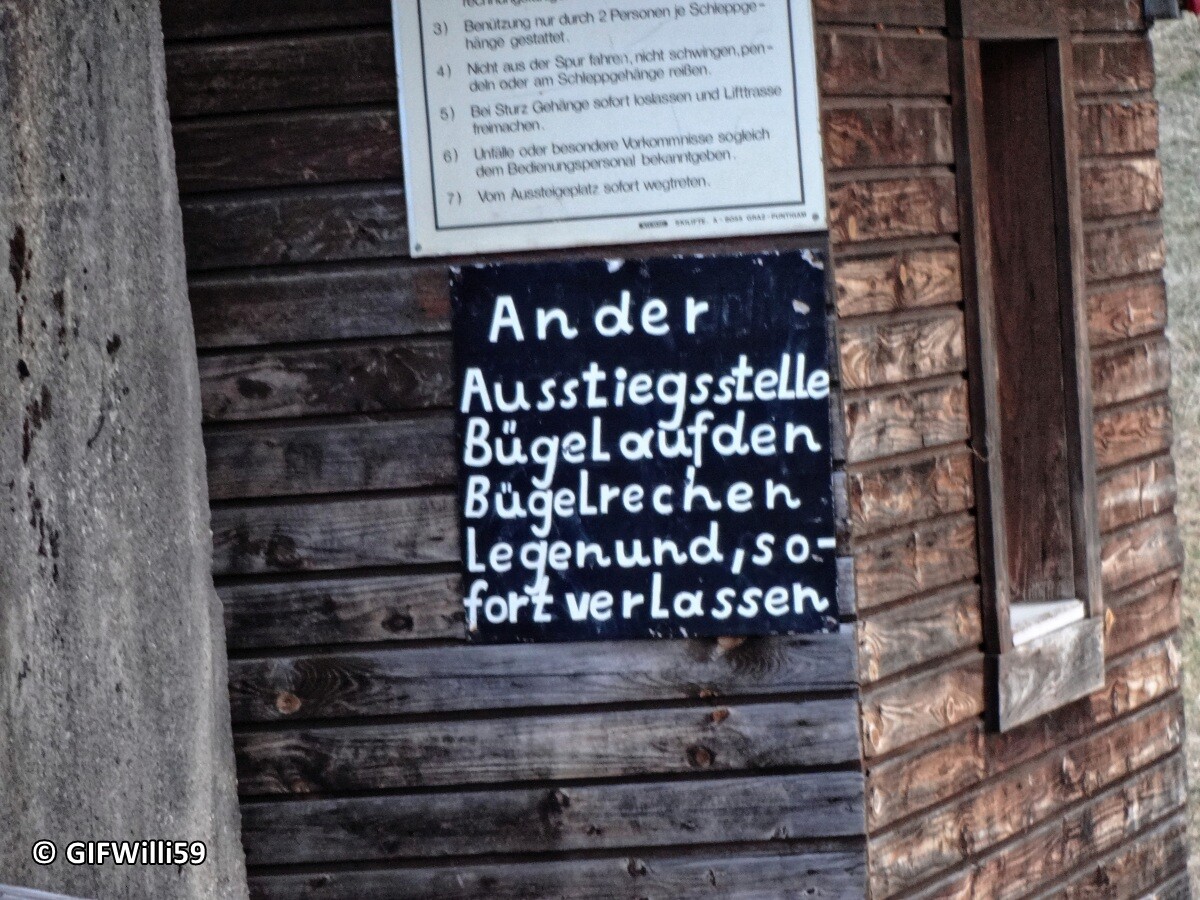 3) Benützung nur durch 2 Personen je Schleppge-
hänge gestattet.
4) Nicht aus der Spur fahren, nicht schwingen, pen-
deln oder am Schleppgehänge reißen.
5) Bei Sturz Gehänge sofort loslassen und Lifttrasse
freimachen.
6) Unfälle oder besondere Vorkommnisse sogleich
dem Bedienungspersonal bekanntgeben.
7) Vom Aussteigeplatz sofort wegtreten.
SKILIFTE, A-8055 GRAZ-PUNTIGAM
An der
Ausstiegsstelle
Bügel auf den
Bügelrechen
Legen und, so-
fort verlassen
© GIFWilli59